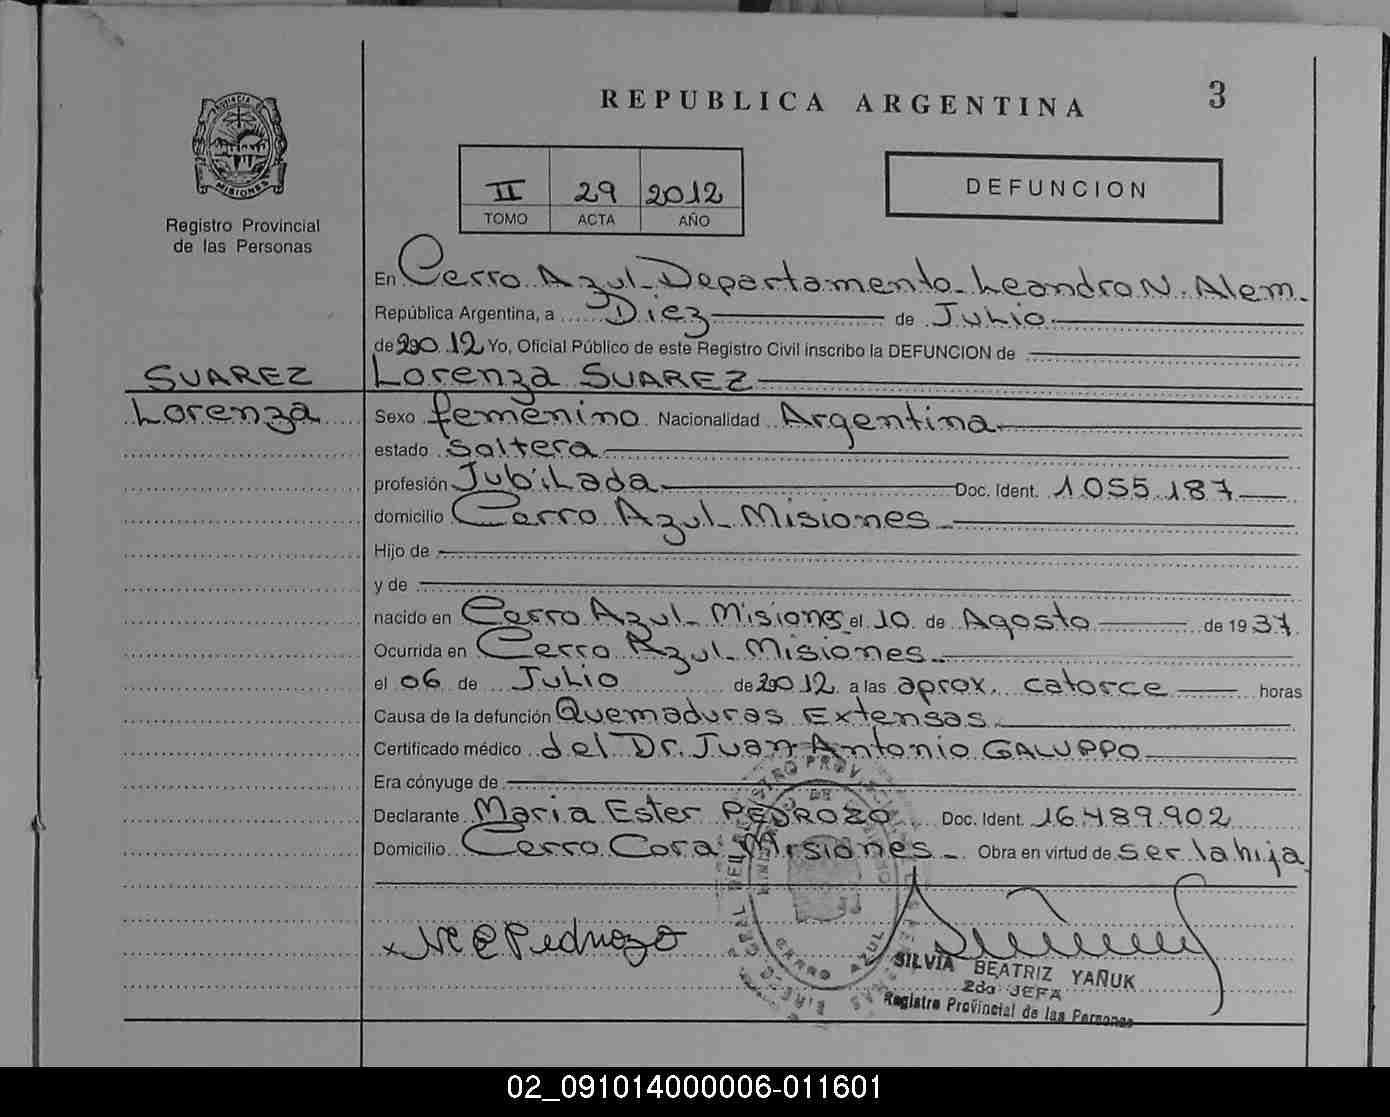 REPUBLICA ARGENTINA
3
PROVINCIA DE
MISIONES
Registro Provincial
de las Personas
II 29 2012
TOMO ACTA AÑO
DEFUNCION
En Cerro Azul - Departamento - Leandro N. Alem -
República Argentina, a Diez de Julio
de 2012 Yo, Oficial Público de este Registro Civil inscribo la DEFUNCION de
SUAREZ Lorenza SUAREZ
Lorenza Sexo femenino Nacionalidad Argentina
estado Soltera
profesión Jubilada Doc. Ident. 1.055.187
domicilio Cerro Azul - Misiones -
Hijo de
y de
nacido en Cerro Azul - Misiones el 10 de Agosto de 1937
Ocurrida en Cerro Azul - Misiones -
el 06 de Julio de 2012 a las aprox. catorce horas
Causa de la defunción Quemaduras Extensas
Certificado médico del Dr. Juan Antonio GALUPPO
Era cónyuge de
Declarante Maria Ester PEDROZO Doc. Ident. 16.489.902
Domicilio Cerro Cora Misiones - Obra en virtud de ser la hija
x M E Pedrozo
CERRO AZUL
SILVIA BEATRIZ YAÑUK
2da JEFA
Registro Provincial de las Personas
02_091014000006-011601